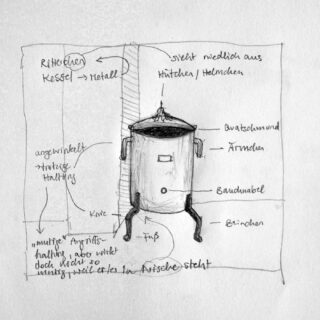 Ritterchen
Kessel → Metall
sieht niedlich aus
Hütchen / Helmchen
Quatschmund
Ärmchen
angewinkelt
→ trotzige
Haltung
Bauchnabel
Knie
Beinchen
Fuß
"mutige" Angriffs-
haltung, aber wirkt
doch nicht so
mutig, weil er/es in Nische steht